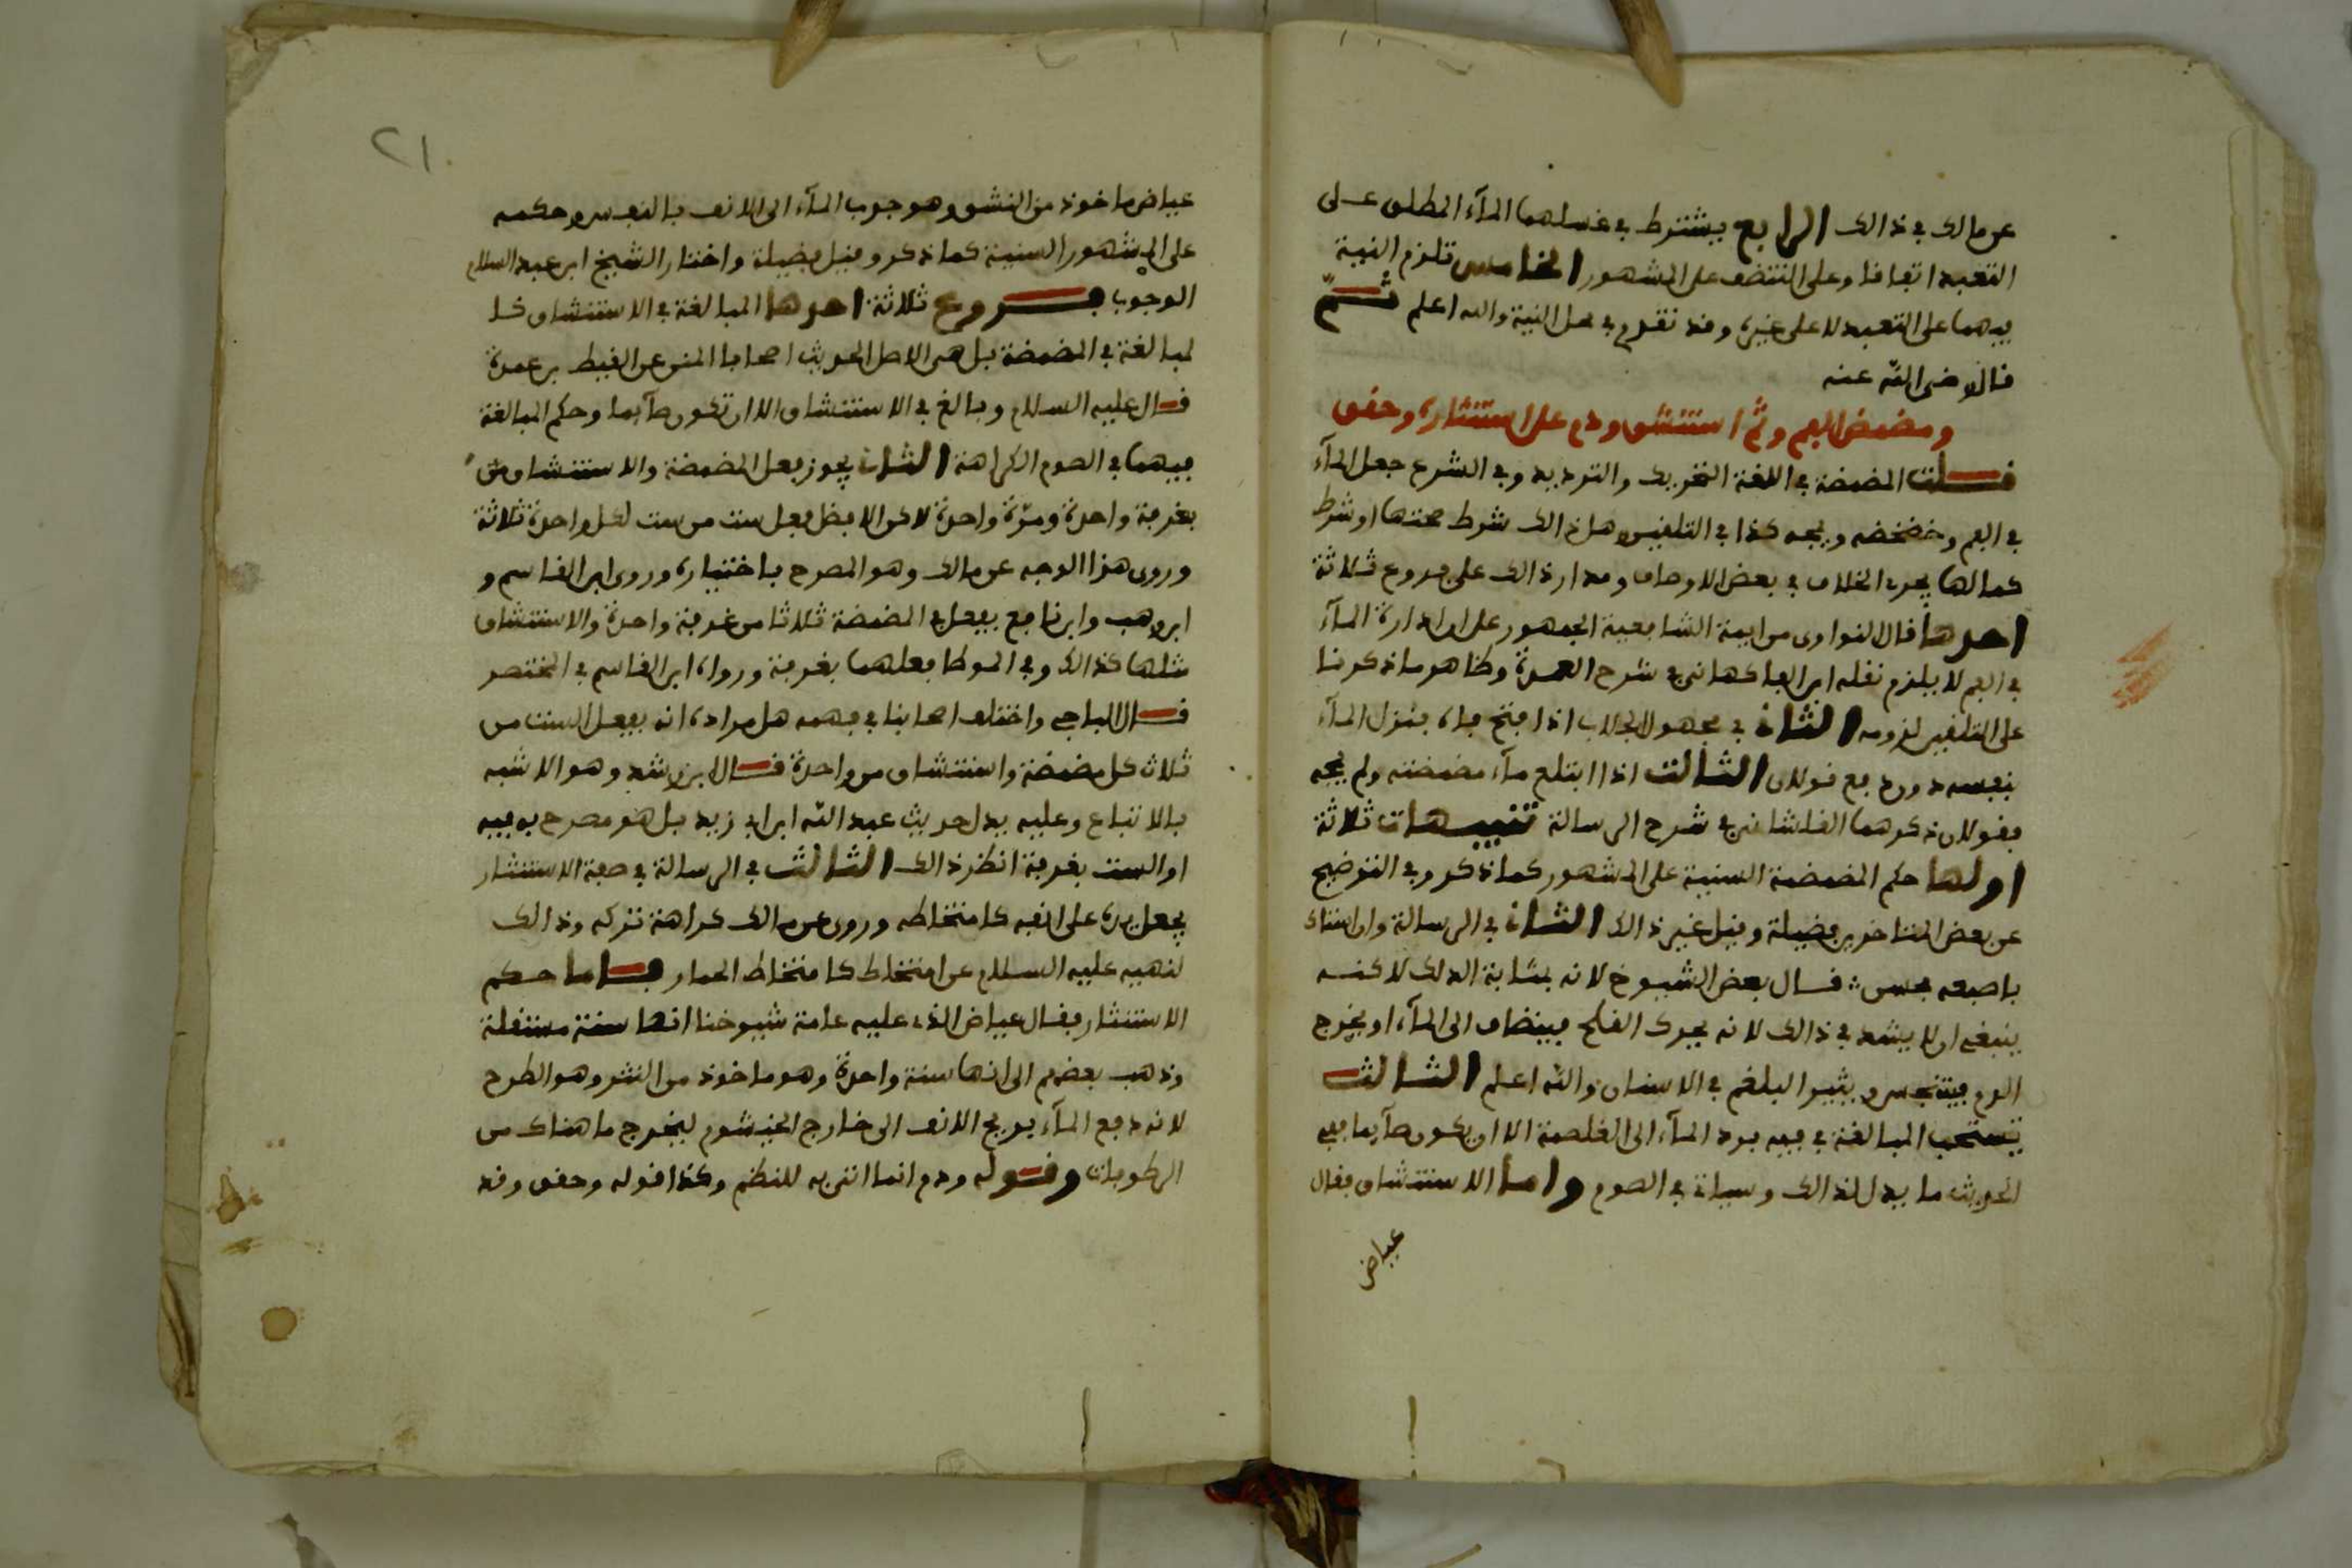 عن مالك في ذالك الرابع يشترط في غسلهما المآء المطلق على
التعبد اتفاقا وعلى التنضف على المشهور الخامس تلزم النية
فيهما على التعبد لا على غيره وقد تقدم في محل النية والله اعلم ثم
قال رضي الله عنه
ومضمض الفم وثم استنشق ودم على استنثاره وحقق
قلت المضمضة في اللغة التحريك والترديد وفي الشرع جعل المآء
في الفم وخضخضه ومجه كذا في التلقين وهل ذالك شرط صحتها او شرط
كمالها يجري الخلاف في بعض الاوصاف ومدار ذالك على فروع ثلاثة
احدها قال النواوي من ايمة الشافعية الجمهور على ان ادارة المآء
في الفم لا يلزم نقله ابن الفاكهاني في شرح العمدة وظاهر ما ذكرنا
على التلقين لزومه الثاني في مجهول الجلاب اذا فتح فاه فنزل المآء
بنفسه دون دفع قولان الثالث اذا ابتلع مآء مضمضته ولم يمجه
فقولان ذكرهما القلشاني في شرح الرسالة تنبيهات ثلاثة
اولها حكم المضمضة السنية على المشهور كما ذكر وفي التوضيح
عن بعض المتاخرين فضيلة وقيل غير ذالك الثاني في الرسالة وان استاك
باصبعه فحسن قال بعض الشيوخ لانه بمثابة الدلك لاكنه
ينبغي ان لا يشد في ذالك لانه يحرك القلح فينضاف الى المآء او يخرج
الدم فيتنجس ويثير البلغم في الاسنان والله اعلم الثالث
تستحب المبالغة في فيه برد المآء الى الغلصمة الا ان يكون صآيما ففي
الحديث ما يدل لذالك وسياتي في الصوم واما الاستنشاق فقال
عياض
٢١
عياض ماخوذ من النشق وهو جوب المآء الى الانف بالنفس وحكمه
على المشهور السنية كما ذكر وقيل فضيلة واختار الشيخ ابن عبد السلام
الوجوب فروع ثلاثة احدها المبالغة في الاستنشاق كا
لمبالغة في المضمضة بل هي الاصل لحديث اصحابا لمنوعن الفيط بن عمدة
قال عليه السلام وبالغ في الاستنشاق الا ان تكون صآيما وحكم المبالغة
فيهما في الصوم الكراهة الثاني يجوز فعل المضمضة والاستنشاق من
بغرفة واحدة ومرّة واحدة لاكن الافضل فعل ست من ست لكل واحدة ثلاثة
وروى هذا الوجه عن مالك وهو المصرح باختياره وروى ابن القاسم و
ابن وهب وابن نافع يفعل في المضمضة ثلاثا من غرفة واحدة والاستنشاق
مثلها كذالك وفي الموطا فعلهما بغرفة ورواه ابن القاسم في المختصر
قال الباجي واختلف اصحابنا في فهمه هل مراده انه يفعل الست من
ثلاث كل مضمضة واستنشاق من واحدة قال ابن رشد وهو الاشبه
بالاتباع وعليه يدل حديث عبد الله ابن ابي زيد بل هو مصرح به فيه
او الست بغرفة انظر ذالك الثالث في الرسالة في صفة الاستنثار
يجعل يده على انفه كامتخاطه وروي عن مالك كراهة تركه وذالك
لنهيه عليه السلام عن امتخاط كامتخاط الحمار فاما حكم
الاستنثار فقال عياض الذي عليه عامة شيوخنا انها سنة مستقلة
وذهب بعضهم الى انها سنة واحدة وهو ماخوذ من النثر وهو الطرح
لانه دفع المآء بريح الانف الى خارج الخيشوم ليخرج ما هناك من
الرطوبات وقوله ودم انما اتى به للنظم وكذا قوله وحقق وقد